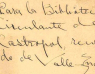 Para la Bibliote
Circulante de
Castropol, recu
do de Valle